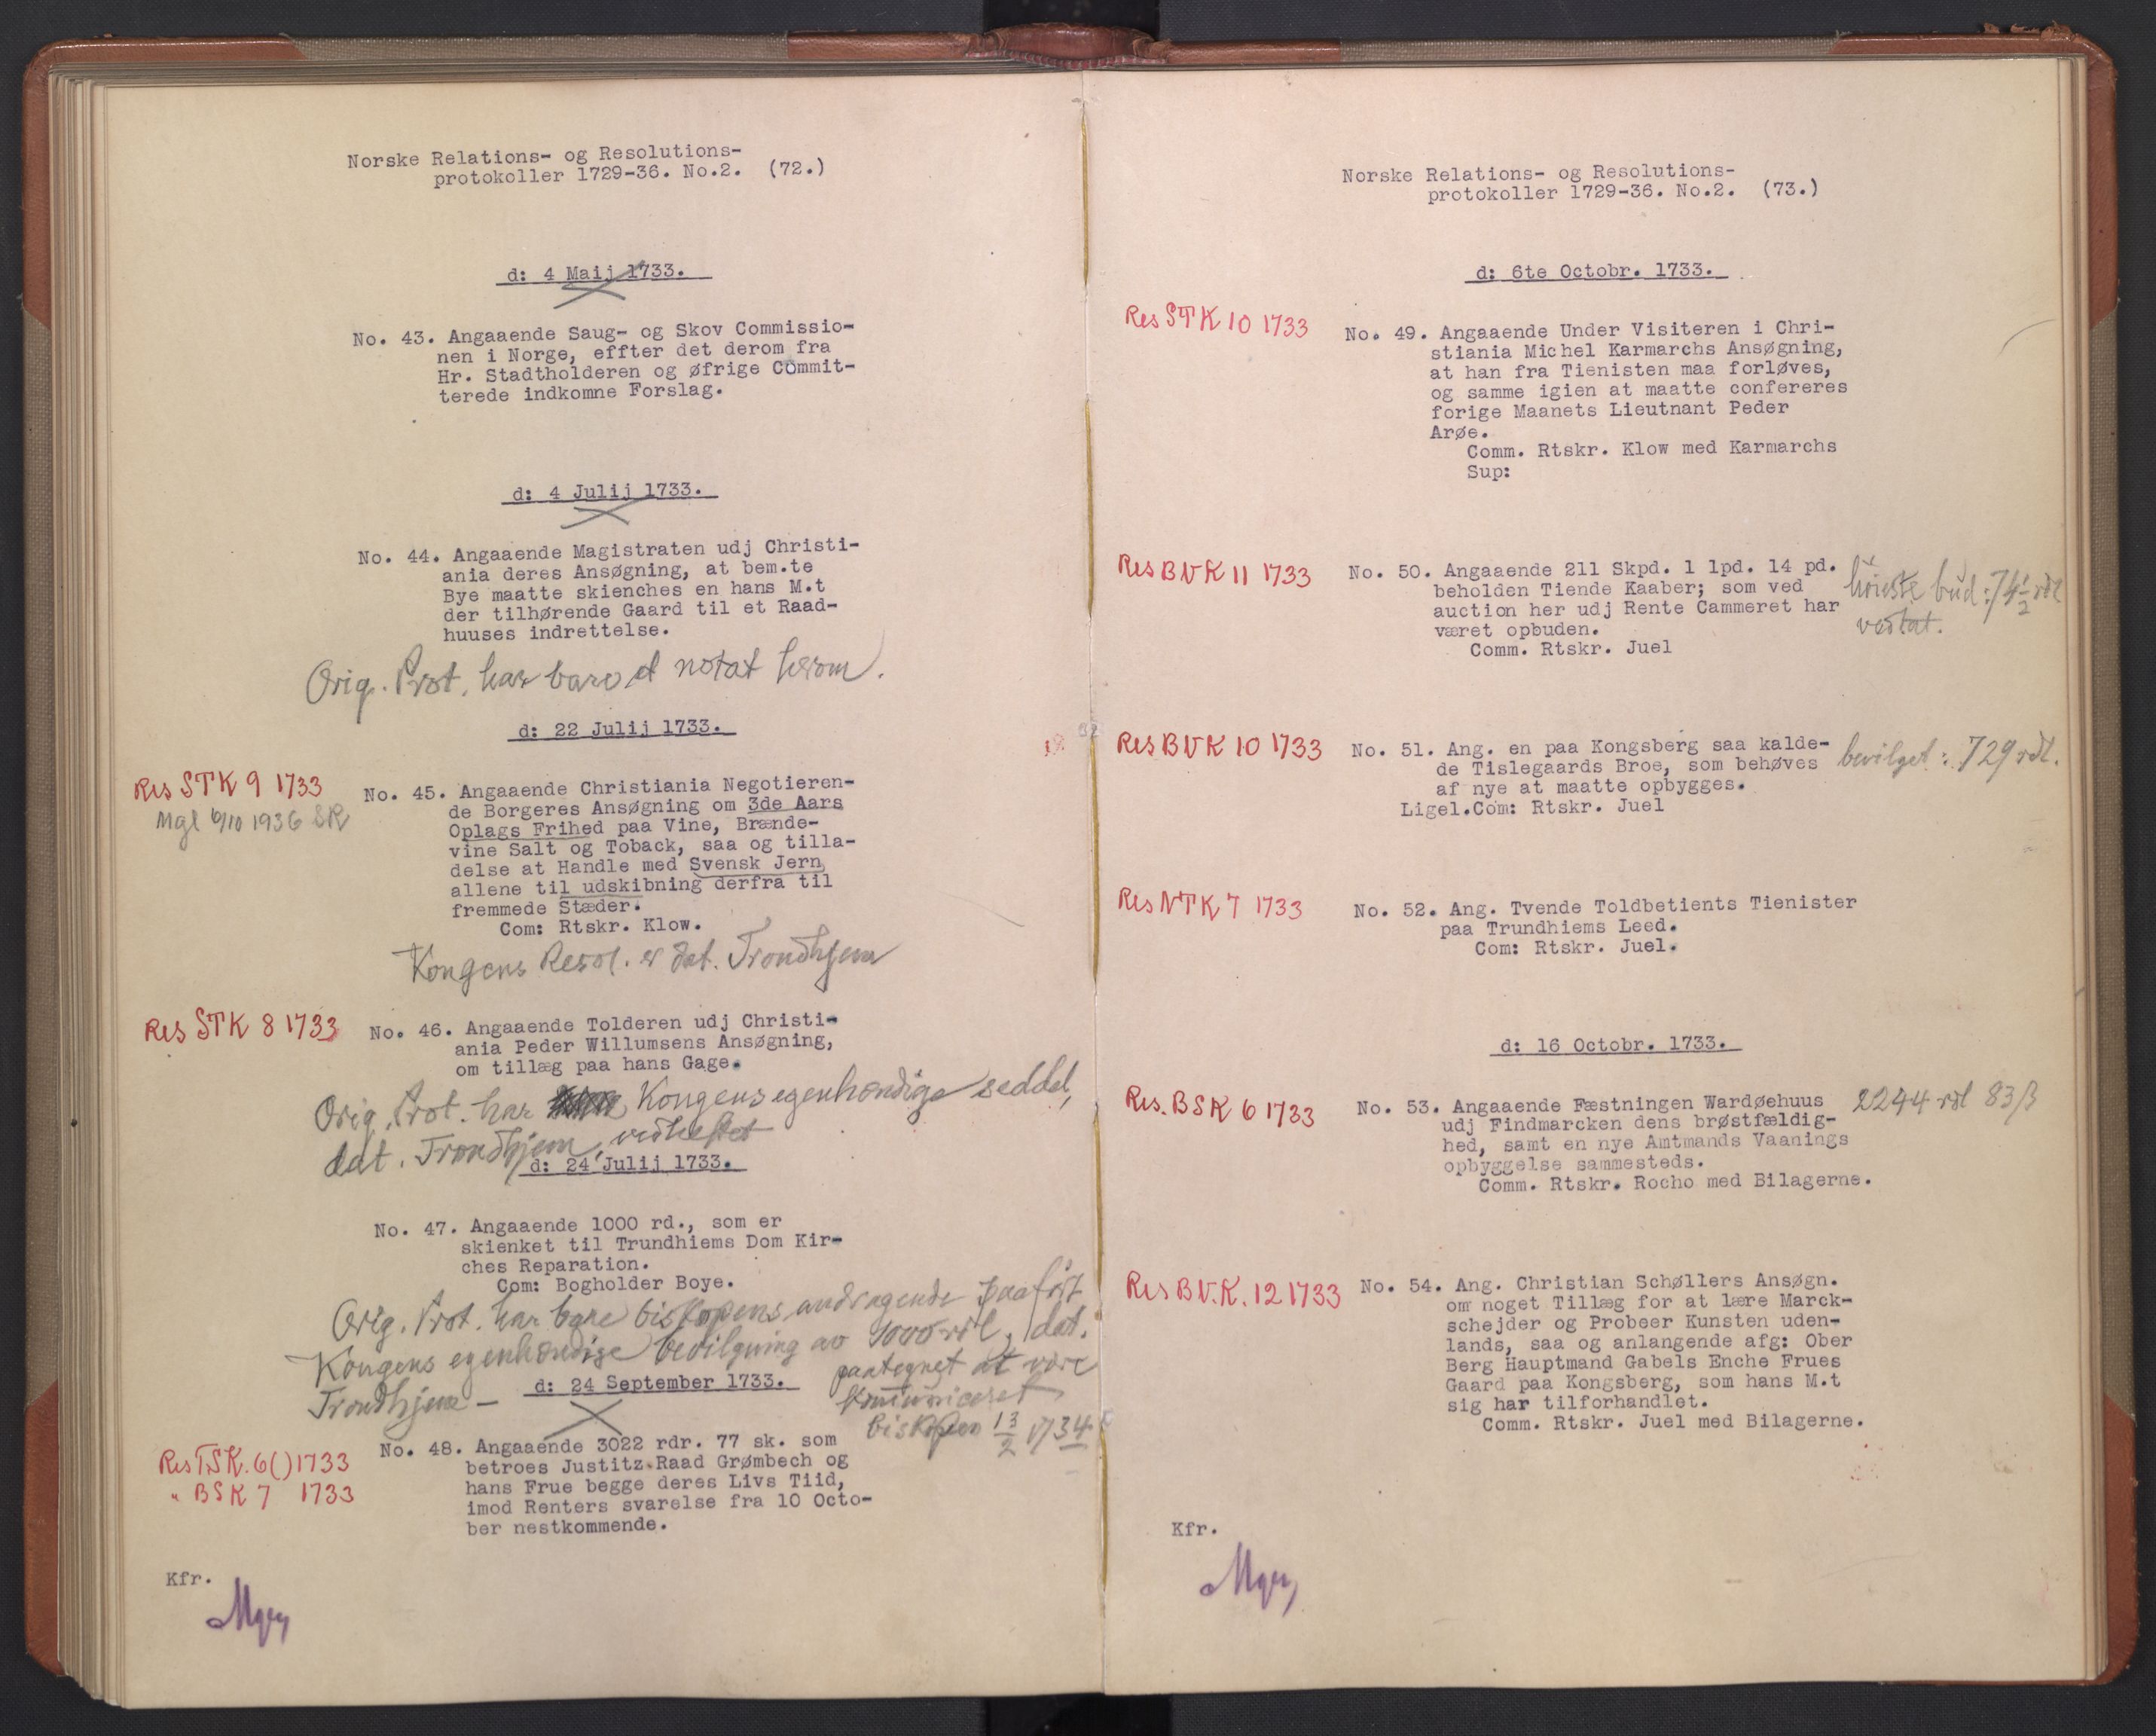 Norske Relations- og Resolutions-
protokoller 1729-36. No.2. (72.)
d: 4 Maij 1733.
No. 43. Angaaende Saug- og Skov Commissio-
nen i Norge, effter det derom fra
Hr. Stadtholderen og øfrige Committ-
terede indkomne Forslag.
d: 4 Julij 1733.
No. 44. Angaaende Magistraten udj Christi-
ania deres Ansøgning, at bem.te
Bye maatte skienches en hans M.t
der tilhørende Gaard til et Raad-
huuses indrettelse.
Orig. Prot. har bare et notat herom.
d: 22 Julij 1733.
Res STK 9 1733
Mgl 6/10 1936 SR
No. 45. Angaaende Christiania Negotieren-
de Borgeres Ansøgning om 3de Aars
Oplags Frihed paa Vine, Brænde-
vine Salt og Toback, saa og tilla-
delse at Handle med Svensk Jern
allene til udskibning derfra til
fremmede Stæder.
Com: Rtskr. Klow.
Kongens Resol. er dat. Trondhjem
Res STK 8 1733
No. 46. Angaaende Tolderen udj Christi-
ania Peder Willumsens Ansøgning,
om tillæg paa hans Gage.
Orig. Prot. har Kongens egenhændige seddel,
dat. Trondhjem, vedheftet
d: 24 Julij 1733.
No. 47. Angaaende 1000 rd., som er
skienket til Trundhiems Dom Kir-
ches Reparation.
Com: Bogholder Boye.
Orig. Prot. har bare biskopens andragende paaført
Kongens egenhændige bevilgning av 1000 rdl, dat.
Trondhjem - paategnet at være
kommuniceret
biskopen 13/2 1734
d: 24 September 1733.
Res TSK. 6() 1733
" BSK 7 1733
No. 48. Angaaende 3022 rdr. 77 sk. som
betroes Justitz.Raad Grømbech og
hans Frue begge deres Livs Tiid,
imod Renters svarelse fra 10 Octo-
ber nestkommende.
Kfr.
Norske Relations- og Resolutions-
protokoller 1729-36. No.2. (73.)
d: 6te Octobr. 1733.
Res STK 10 1733
No. 49. Angaaende Under Visiteren i Chri-
stiania Michel Karmarchs Ansøgning,
at han fra Tienisten maa forløves,
og samme igien at maatte confereres
forige Maanets Lieutnant Peder
Arøe.
Comm. Rtskr. Klow med Karmarchs
Sup:
Res BVK 11 1733
No. 50. Angaaende 211 Skpd. 1 lpd. 14 pd.
beholden Tiende Kaaber; som ved
auction her udj Rente Cammeret har
været opbuden.
Comm. Rtskr. Juel
höieste bud: 74 1/2 rdl
Res BVK 10 1733
No. 51. Ang. en paa Kongsberg saa kalde-
de Tislegaards Broe, som behøves
af nye at maatte opbygges.
Ligel.Com: Rtskr. Juel
bevilget: 729 rdl.
Res NTK 7 1733
No. 52. Ang. Tvende Toldbetients Tienister
paa Trundhiems Leed.
Com: Rtskr. Juel.
d: 16 Octobr. 1733.
Res. BSK 6 1733
No. 53. Angaaende Fæstningen Wardøehuus
udj Findmarcken dens brøstfældig-
hed, samt en nye Amtmands Vaanings
opbyggelse sammesteds.
Comm. Rtskr. Rocho med Bilagerne.
2244 rdl 83 ß
Res BV.K. 12 1733
No. 54. Ang. Christian Schøllers Ansøgn.
om noget Tillæg for at lære Marck-
schejder og Probeer Kunsten uden-
lands, saa og anlangende afg: Ober
Berg Hauptmand Gabels Enche Frues
Gaard paa Kongsberg, som hans M.t
sig har tilforhandlet.
Comm. Rtskr. Juel med Bilagerne.
Kfr.